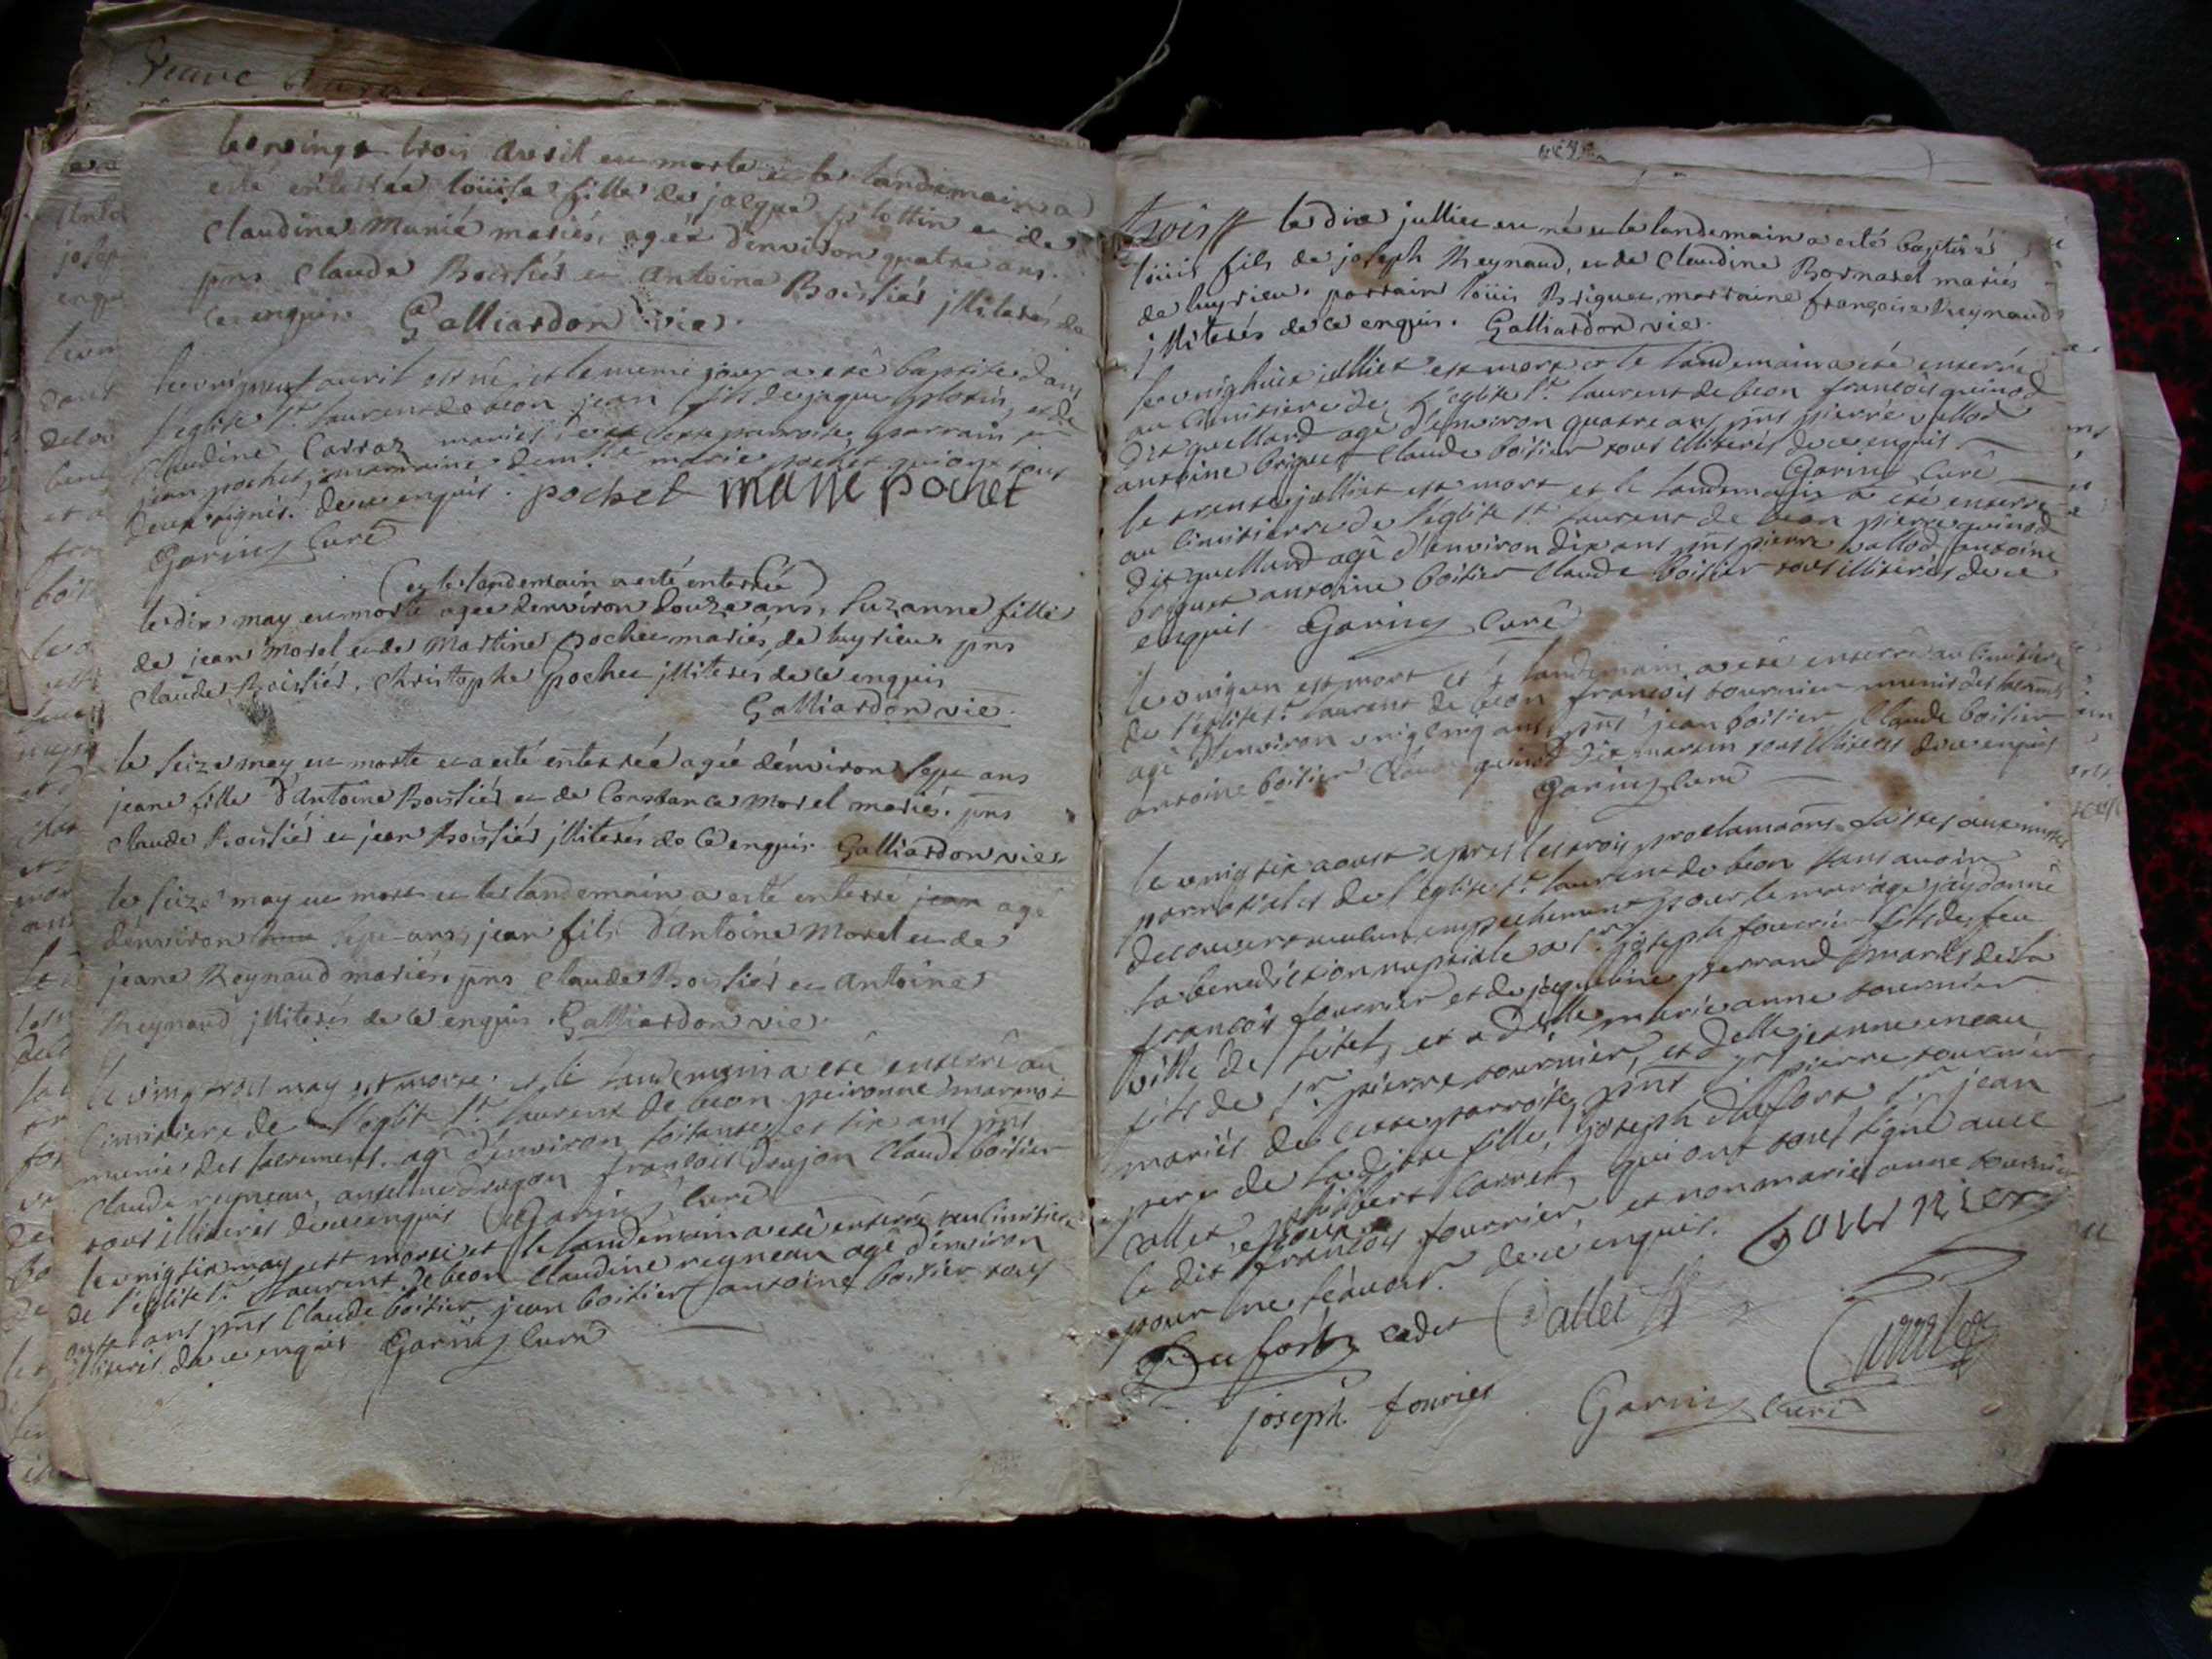 le vingt trois avril est morte et le landemain a
esté enterrée loüise fille de jacque plottin et de
Claudine Munié mariés, agée d'environ quatre ans.
pns Claude Boistiés et Antoine Boistiés jlliterés de
ce enquis Galliardon vic.
le vnigneuf auril est né, et le meme jour a eté baptise dans
l'eglise st laurent de beon jean fils de jaque plotin, et de
Claudine Carraz mariés de cette parroise, parrain
jean pochet, marraine demlle marie pochet qui ont tous
deux signés. de ce enquis. pochet marie pochet
Garin Curé
(et le landemain a esté enterrée)
le dix may est morte agée d'environ douze ans, Suzanne fille
de jean Morel et de Martine pochet mariés, de luyrieu. pns
Claude Boistiés, Christophe pochet jlliterés de ce enquis
Galliardon vic.
le seize may est morte et a esté enterrée agée d'environ sept ans
jeane fille d'Antoine Boistiés et de Constance Morel mariés. pns
Claude Boistiés et jean Boistiés jlliterés de ce enquis Galliardon vic.
le seize may est mort et le landemain a esté enterré jean agé
d'environ sept ans, jean fils d'Antoine Morel et de
jeane Reynaud mariés, pns Claude Boistiés et Antoine
Reynaud jlliterés de ce enquis. Galliardon vic.
le vingtrois may est morte et le landemain a eté enterré au
Cimistiere de l'eglise st laurent de beon peironne
munie des sacrements. agé d'environ soisante et six ans pns
Claude reyneau, anselme dragon francois drujon Claude boitier
tous illiterés de ce enquis Garin Curé
le vnigsix may est morte et le landemain a eté enterré au cimistiere
de l'eglise st laurent de beon Claudine reyneau agé d'environ
ans pns Claude boitier jean boitier antoine boitier tous
illiterés de ce enquis Garin Curé
trois le dix julliet est né et le landemain a esté baptisés
loüis fils de joseph Reynaud, et de Claudine Bornarel mariés
de luyrieu. parrain loüis Briguet, marraine françoise Reynaud
jlliterés de ce enquis. Galliardon vic.
le vnighuit julliet est mort et le landemain a eté enterré
au Cimitiere de l'eglise st laurent de beon francois quinod
dit quellard agé d'environ quatre ans pns pierre vallod
antoine briguet Claude boitier tous illiterés de ce enquis
Garin Curé
le trente julliet est mort et le landemain a eté enterré
au Cimitierre de l'eglise st laurent de beon pierre quinod
dit quellard agé d'environ dix ans pns pierre vallod, antoine
briguet antoine boitier Claude boitier tous illiterés de ce
enquis Garin Curé
le vnigun est mort et le landemain a eté enterré au Cimitiere
de l'eglise st laurent de beon francois tournier munis des sacrements
agé d'environ vnigcinq ans, pns jean boitier Claude boitier
antoine boitier quinod dit martin tous illiterés de ce enquis
Garin Curé
le vnigsix aoust apres les trois proclamaõns faites aux
parroisiales de l'eglise st laurent de beon sans avoir
decouvert aucun empechement pour le mariage j'ay donné
la benediction nuptiale a sr joseph fourrier fils de feu
francois fourrier et de jaqueline perrand mariés de la
ville de et a dlle marie anne tournier
fils de sr pierre tournier, et dlle jeanne
mariés de cette parroise, pns sr pierre tournier
pere de la ditte fille, joseph dufort sr jean
callet philbert carret, qui ont tous signé avec
le dit epoux francois fourrier, et non marie anne tournier
pour ne scavoir. de ce enquis. tournier
Dufort cadet Callet
joseph fourier Garin Curé